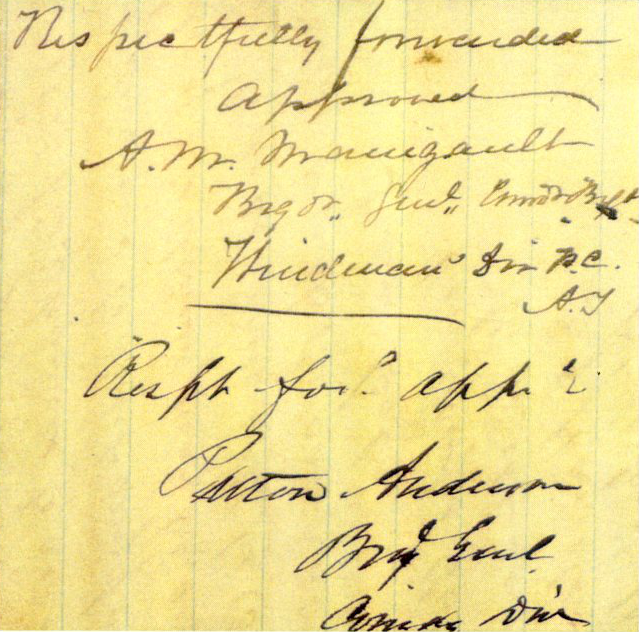 Respectfully forwarded
approved
A. M. Manigault
Brig. Genl. Comdg Brgd
Hindman's Div P.C.
A.T
Respt for.d app.d
Patton Anderson
Brig Genl
Comdg Div